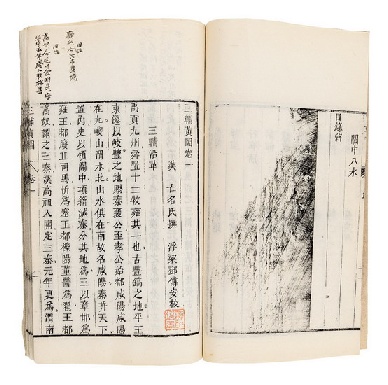 關中八水
目錄終
三輔黃圖卷一
漢 古名氏撰 浮梁鄧傳安校
三輔沿革
禹貢九州舜置十二牧雍其一也古豐鎬之地平王
東遷以岐豐之地賜秦襄公至孝公始都咸陽咸陽
在九嵕山渭水北山水俱在南故名咸陽秦并天下
置內史以領關中項籍滅秦分其地爲三以章邯爲
雍王都廢邱司馬欣爲塞王都櫟陽董翳爲翟王都
高奴謂之三秦漢高祖入關定三秦元年更爲渭南
三輔黃圖 卷一